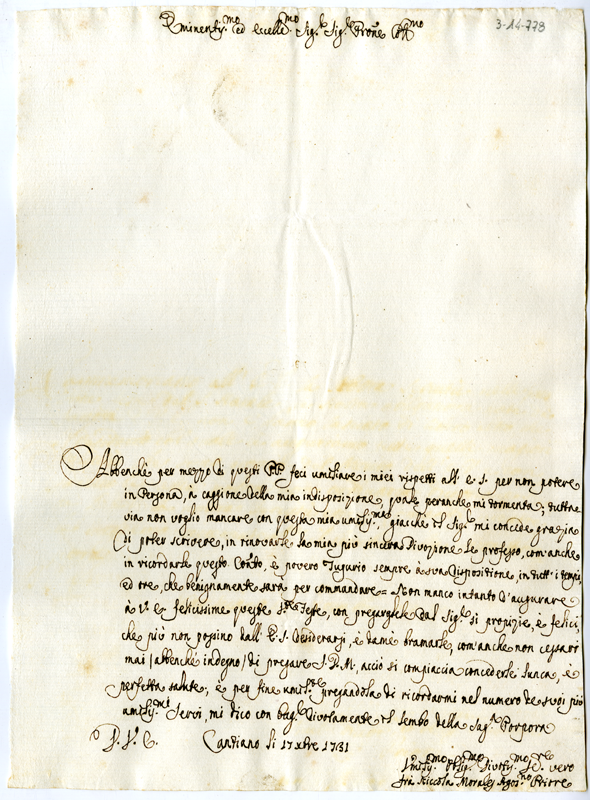 3-14-773
Eminentiss.mo ed Eccell.mo Sig.e Sig.e Prone
Abbenchè per mezzo di questi PP. feci umiliare i miei rispetti all' E. S. per non potere
in Persona, à caggione della mia indisposizione, quale peranche mi tormenta; tutta
via non voglio mancare con questa mia umiliss.ma, giacchè il Sig.e mi concede grazia
di poter scrivere, in rinovarle la mia più sincera Divozione le professo, com'anche
in ricordarle questo Con.to, è povero Tugurio sempre à sua Disposizione, in tutt'i tempi,
ed ore, che benignamente sarà per commandare = Non manco intanto d'augurare
à V. E. felicissime queste S.te Feste, con pregargliele dal Sig.e si propizie, è felici,
che più non possino dall' E. S. desiderarsi, è da mè bramarle, com'anche non cessarò
mai /abbenchè indegno/ di pregare S. D. M. acciò si compiaccia concederle lunga, è
perfetta salute; è per fine umil.te pregandola di ricordarmi nel numero de suoi più
umiliss.mi servi, mi dico con bag.le divotamente il lembo della Sag.a Porpora
D. V. E. Cantiano li 17 xbre 1731
Umiliss.mo Oblig.mo Divotiss.mo Se.re vero
frà Niccola Morales Agos.no Priore